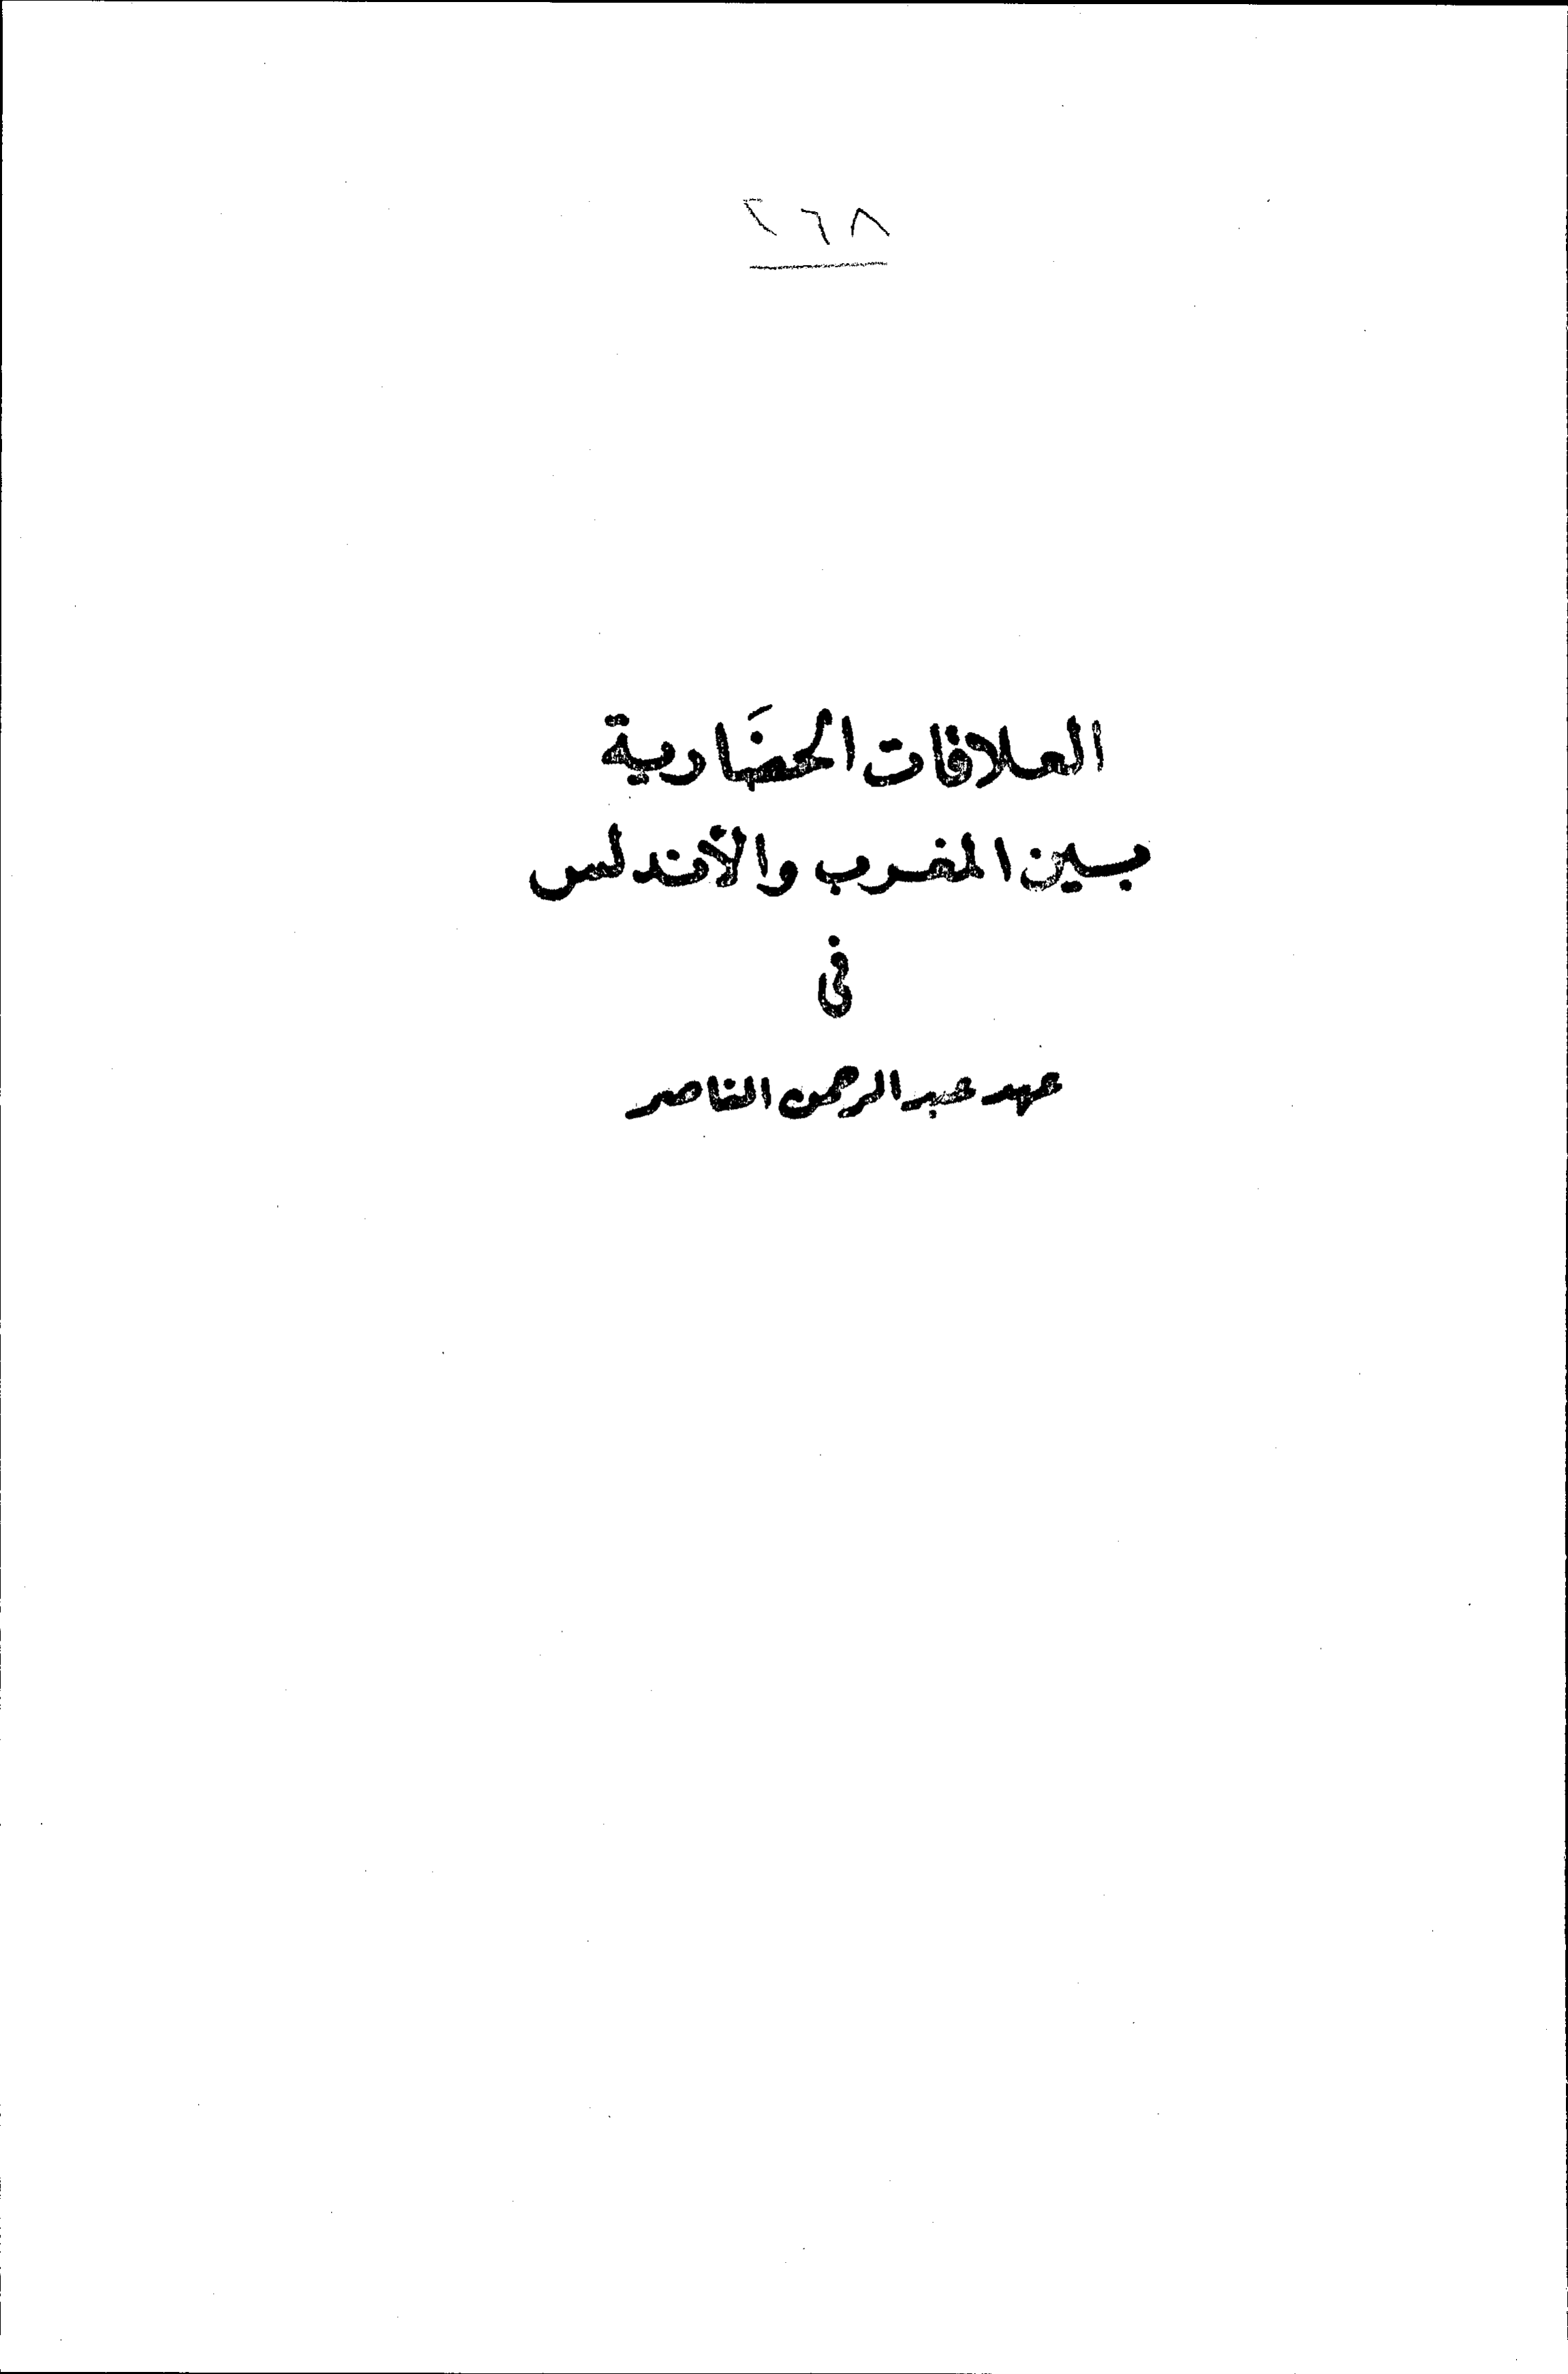 ٢٦٨
العلاقات الحضَارية
بين المغرب والأندلس
فى
عهد عبد الرحمن الناصر